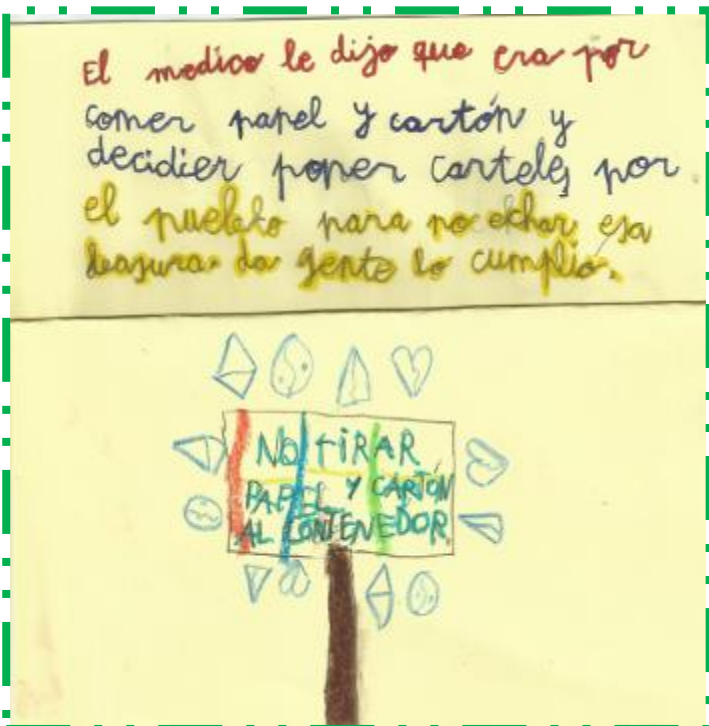 El medico le dijo que era por
comer papel y cartón y
decidier poner carteles por
el pueblo para no echar esa
basura. La gente lo cumplió.
NO TIRAR
PAPEL Y CARTÓN
AL CONTENEDOR